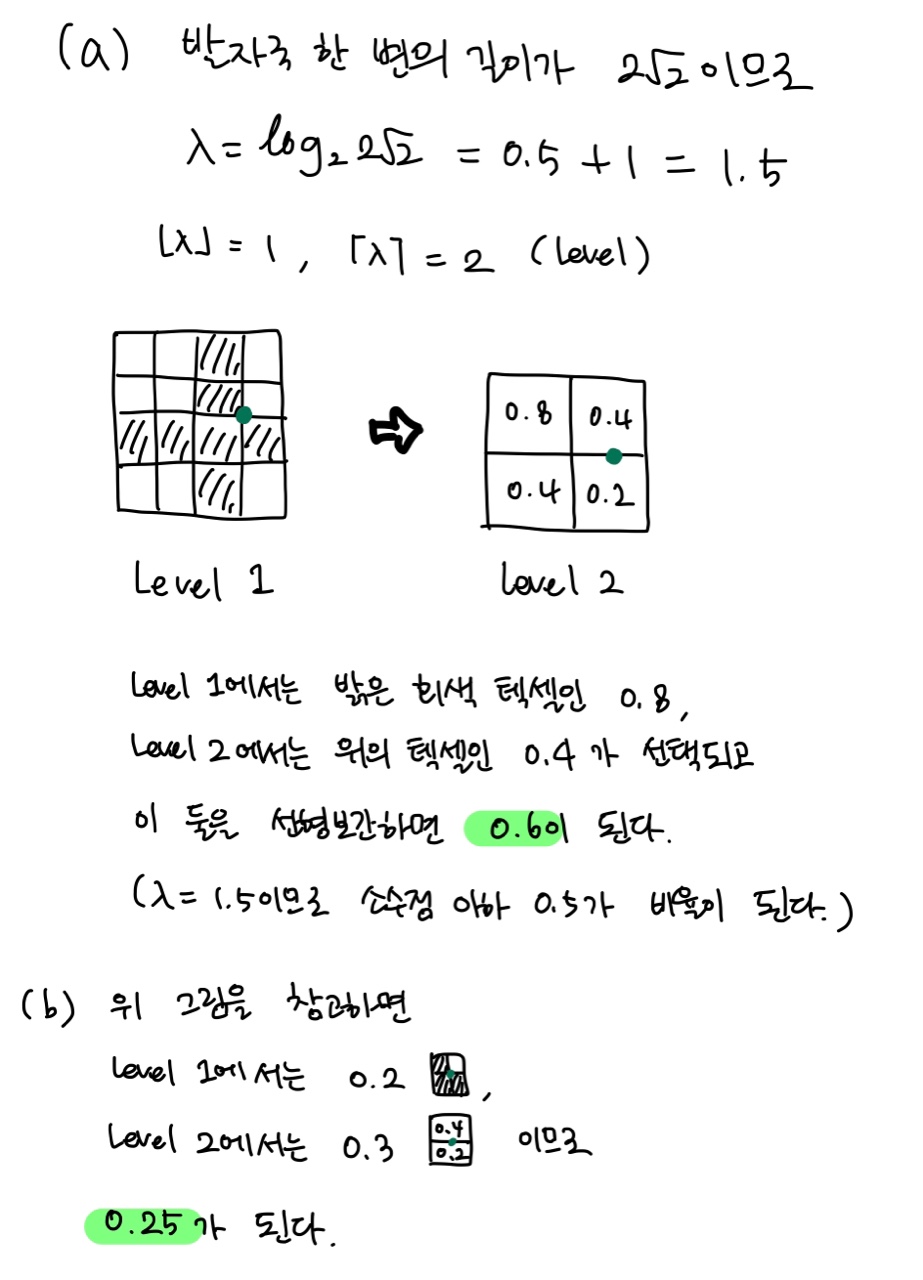 (a) 발자국 한 변의 길이가 2√2이므로
λ = log₂ 2√2 = 0.5 + 1 = 1.5
⌊λ⌋ = 1, ⌈λ⌉ = 2 (level)
0.8 0.4
0.4 0.2
Level 1
Level 2
Level 1에서는 밝은 회색 텍셀인 0.8,
Level 2에서는 위의 텍셀인 0.4가 선택되고
이 둘을 선형보간하면 0.6이 된다.
(λ = 1.5이므로 소수점 이하 0.5가 비율이 된다.)
(b) 위 그림을 참고하면
Level 1에서는 0.2 ,
Level 2에서는 0.3 0.4 이므로
0.2
0.25가 된다.